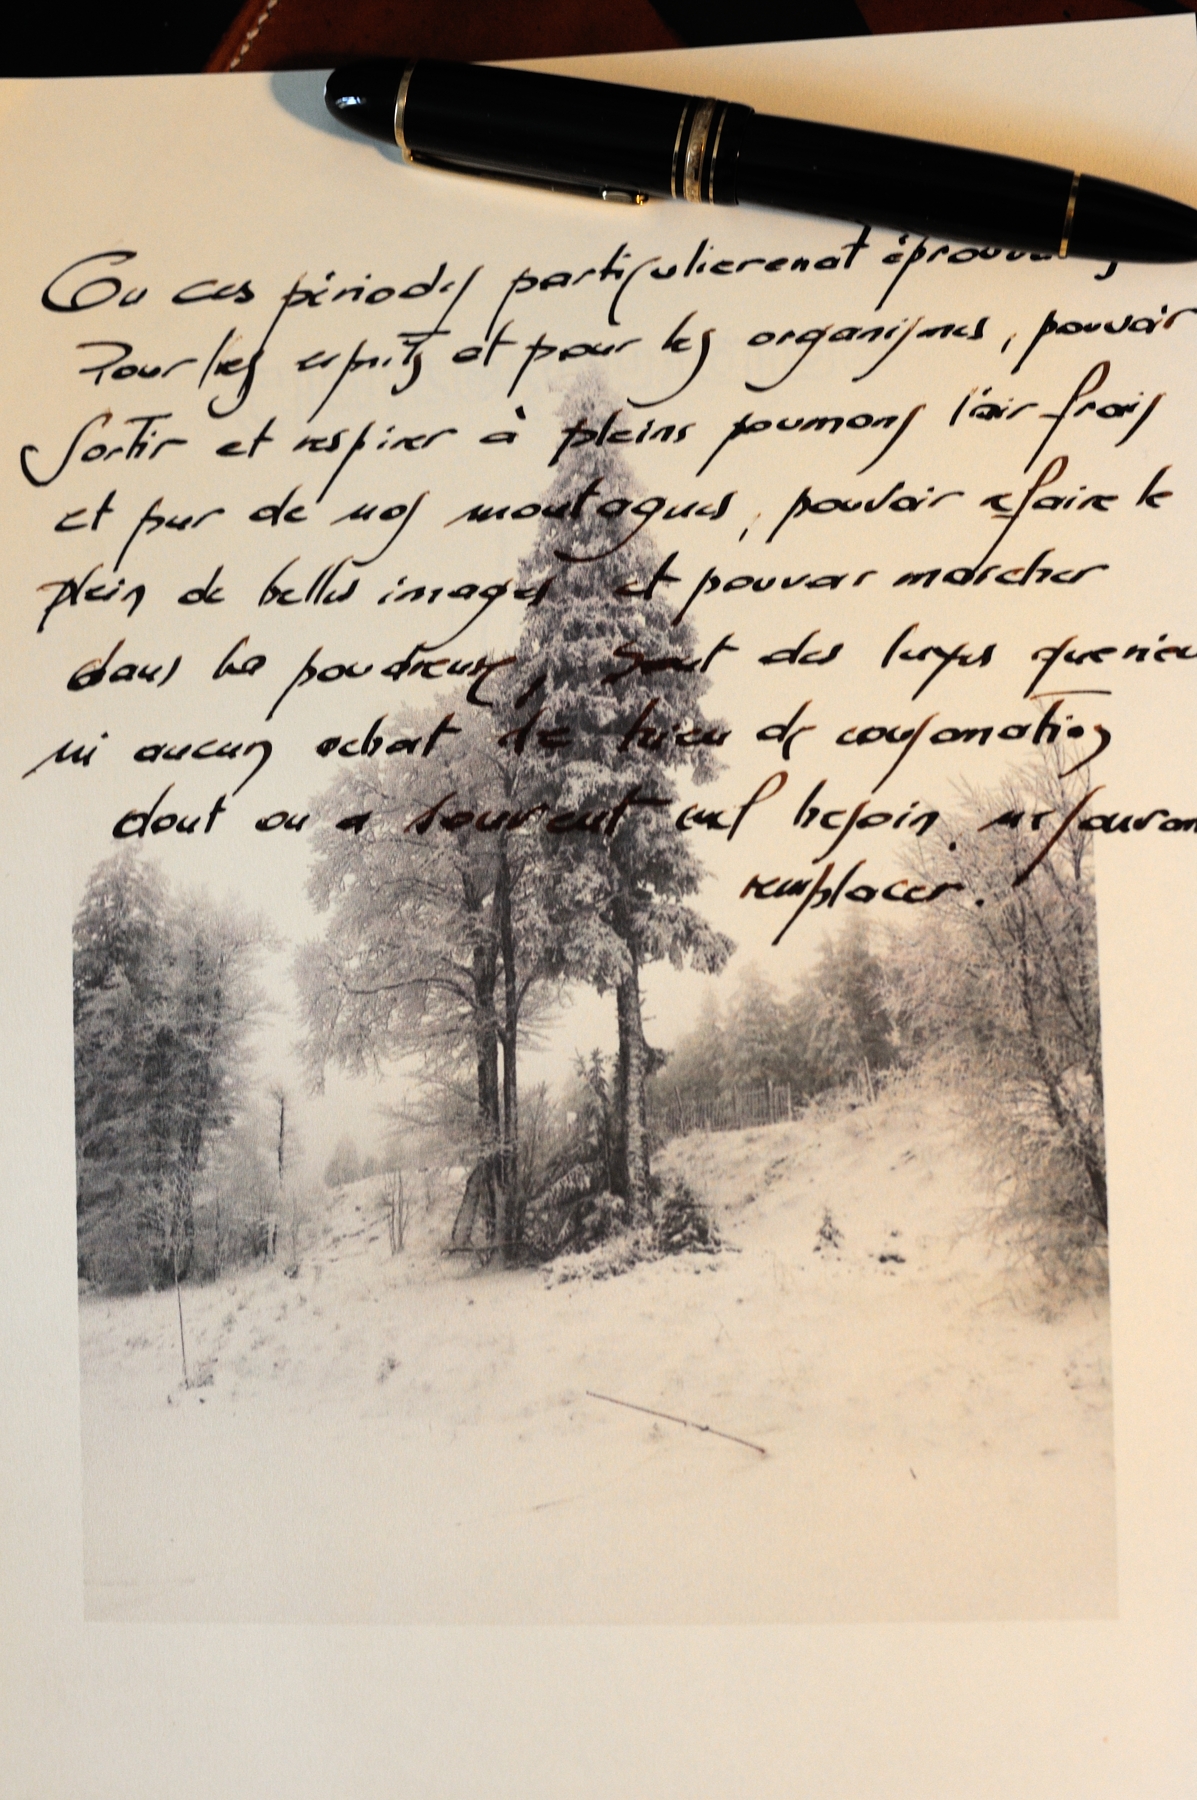 En ces périodes particulièrement éprouvantes
Pour les esprits et pour les organismes, pouvoir
Sortir et respirer à pleins poumons l'air frais
et pur de nos montagnes, pouvoir refaire le
plein de belles images et pouvoir marcher
dans la poudreuse, sont des luxes que rien
ni aucun achat de bien de consomation
dont on a souvent nul besoin ne sauront
remplacer.